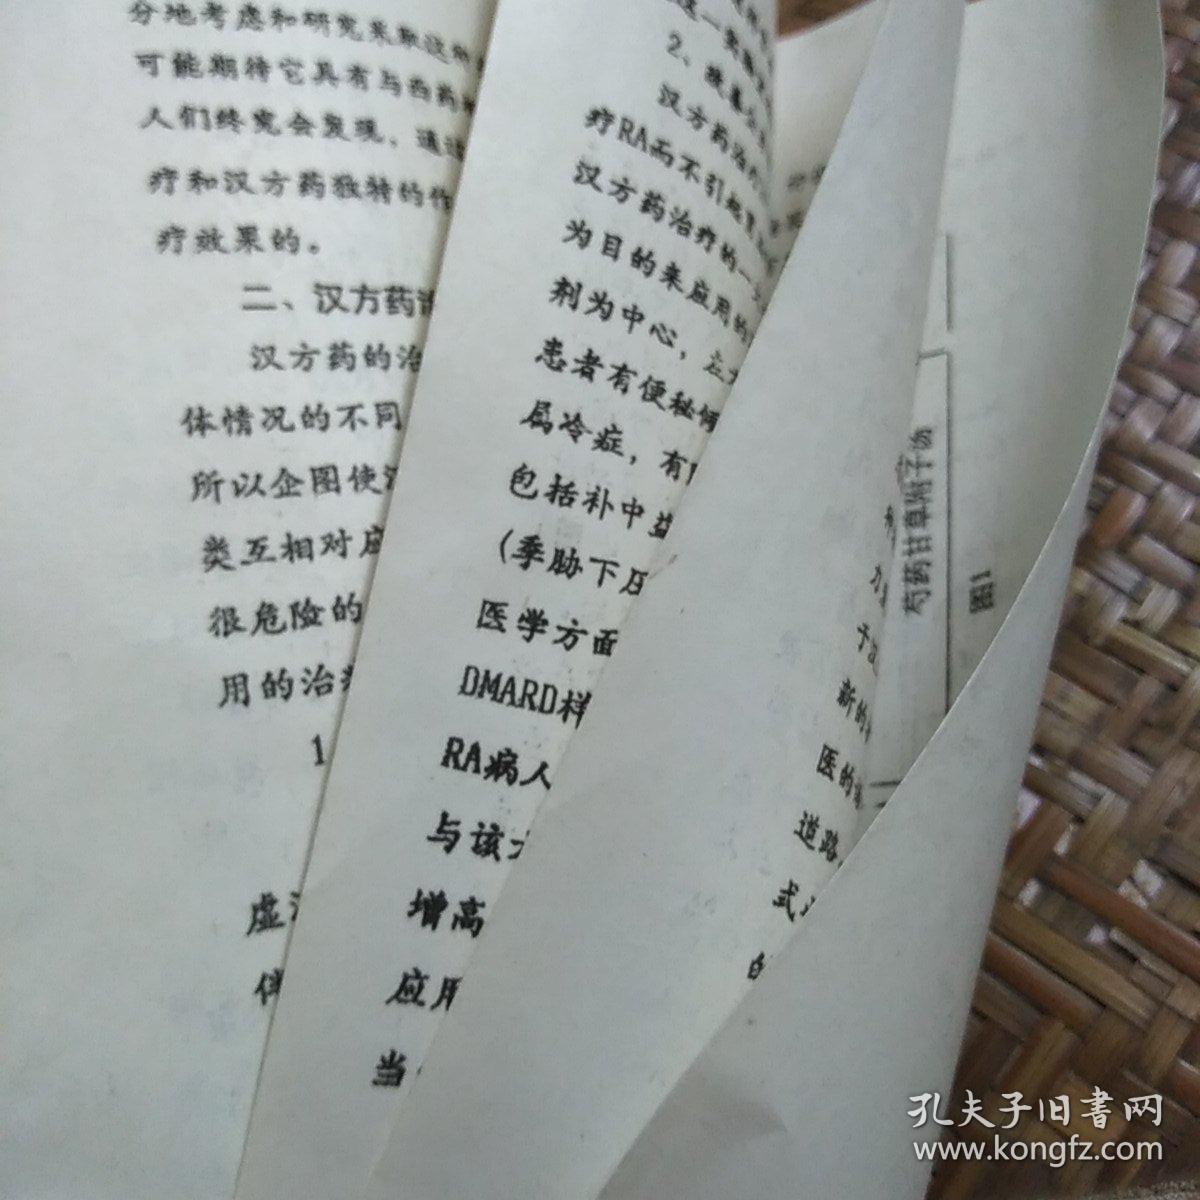 分地考虑和研究采取这种
可能期待它具有与西药
人们终究会发现，通过
疗和汉方药独特的作
疗效果的。
二、汉方药
汉方药的治
体情况的不同
所以企图使
类互相对应
很危险的
用的治
1
虚
2、
汉方药治疗
疗RA而不引起胃
汉方药治疗的一
为目的来应用的
剂为中心，左
患者有便秘倾
属冷症，有
包括补中益
(季胁下压
医学方面
DMARD样
RA病人
与该
增高
应用
当
力
于
新的
医的
道路
式
的
芍药甘草附子汤
图1
孔夫子旧书网
www.kongfz.com